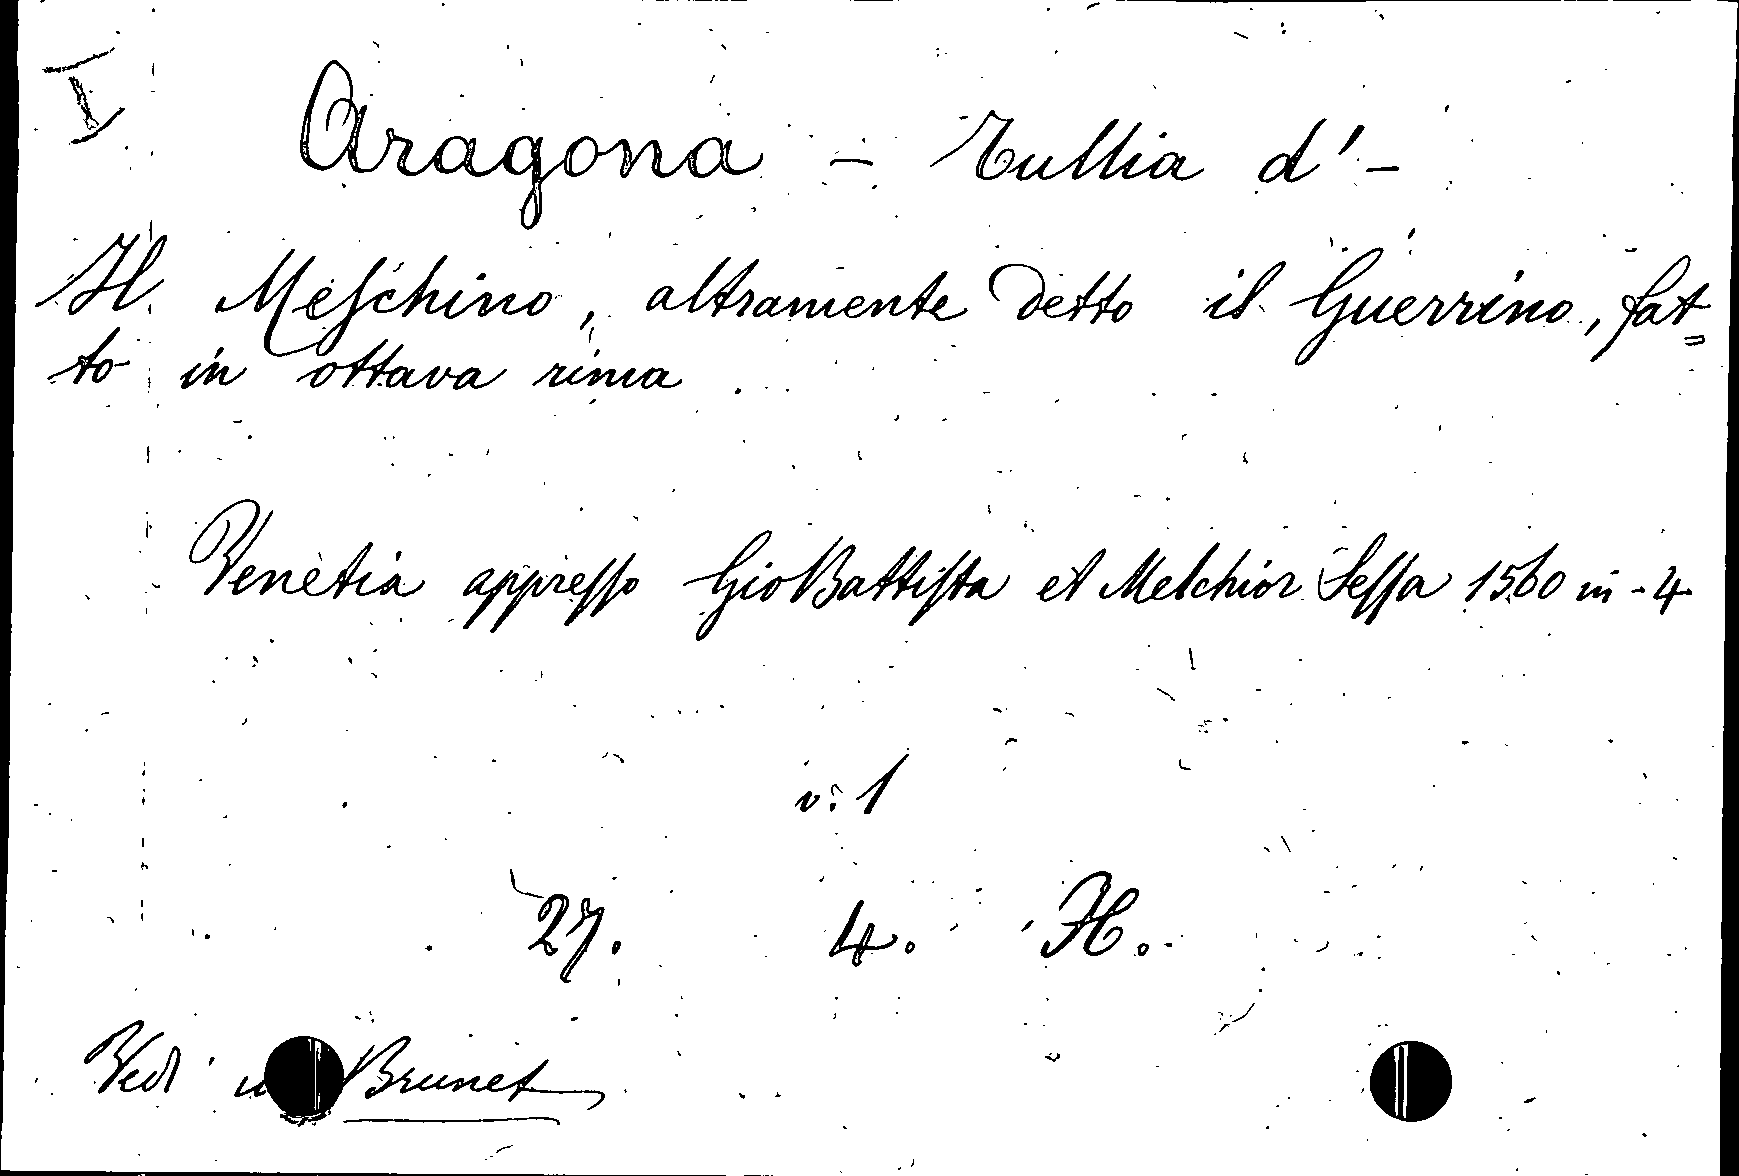 I
Aragona – Tullia d'–
Il Meschino, altramente detto il Guerrino, fat=
to in ottava rima
Venetia appresso Gio Battista et Melchior Sessa 1560 in-4
v. 1
27. 4. H.
Vedi Brunet